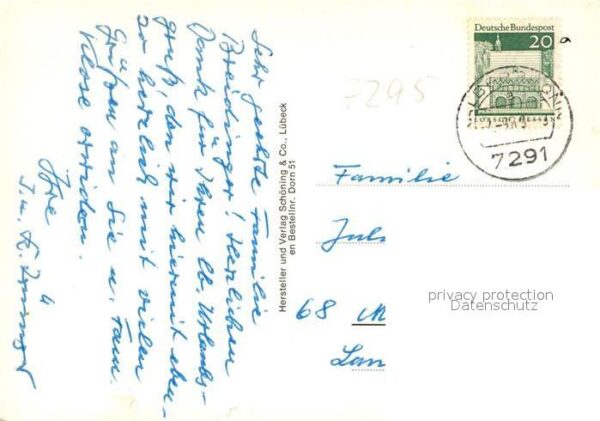 Sehr geehrte Familie
Breidinger! Herzlichen
Dank für Ihren lb. Urlaubs-
gruß, den wir hiermit eben-
so herzlich mit vielen
Grüßen an Sie u. Fam.
Klose erwidern.
Ihre
J. u. K.
Hersteller und Verlag Schöning & Co., Lübeck
en Bestellnr. Dorn 51
7295
Deutsche Bundespost
20
LORSCH HESSEN
7291
Familie
Jul
68 M
Lan
privacy protection
Datenschutz